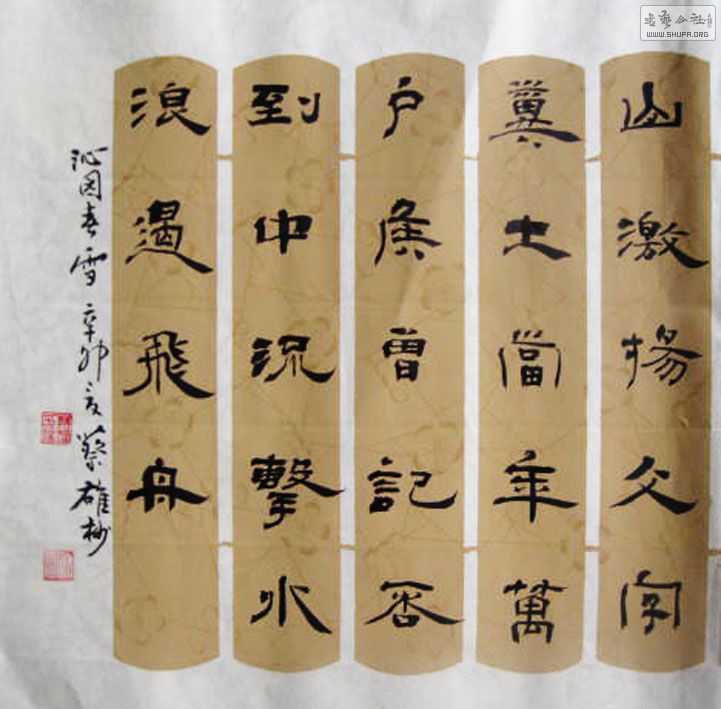 山激揚文字
糞土當年萬
户侯曾記否
到中流擊水
浪遏飛舟
沁园春雪 辛卯夏 蔡雄
WWW.SHUFA.ORG